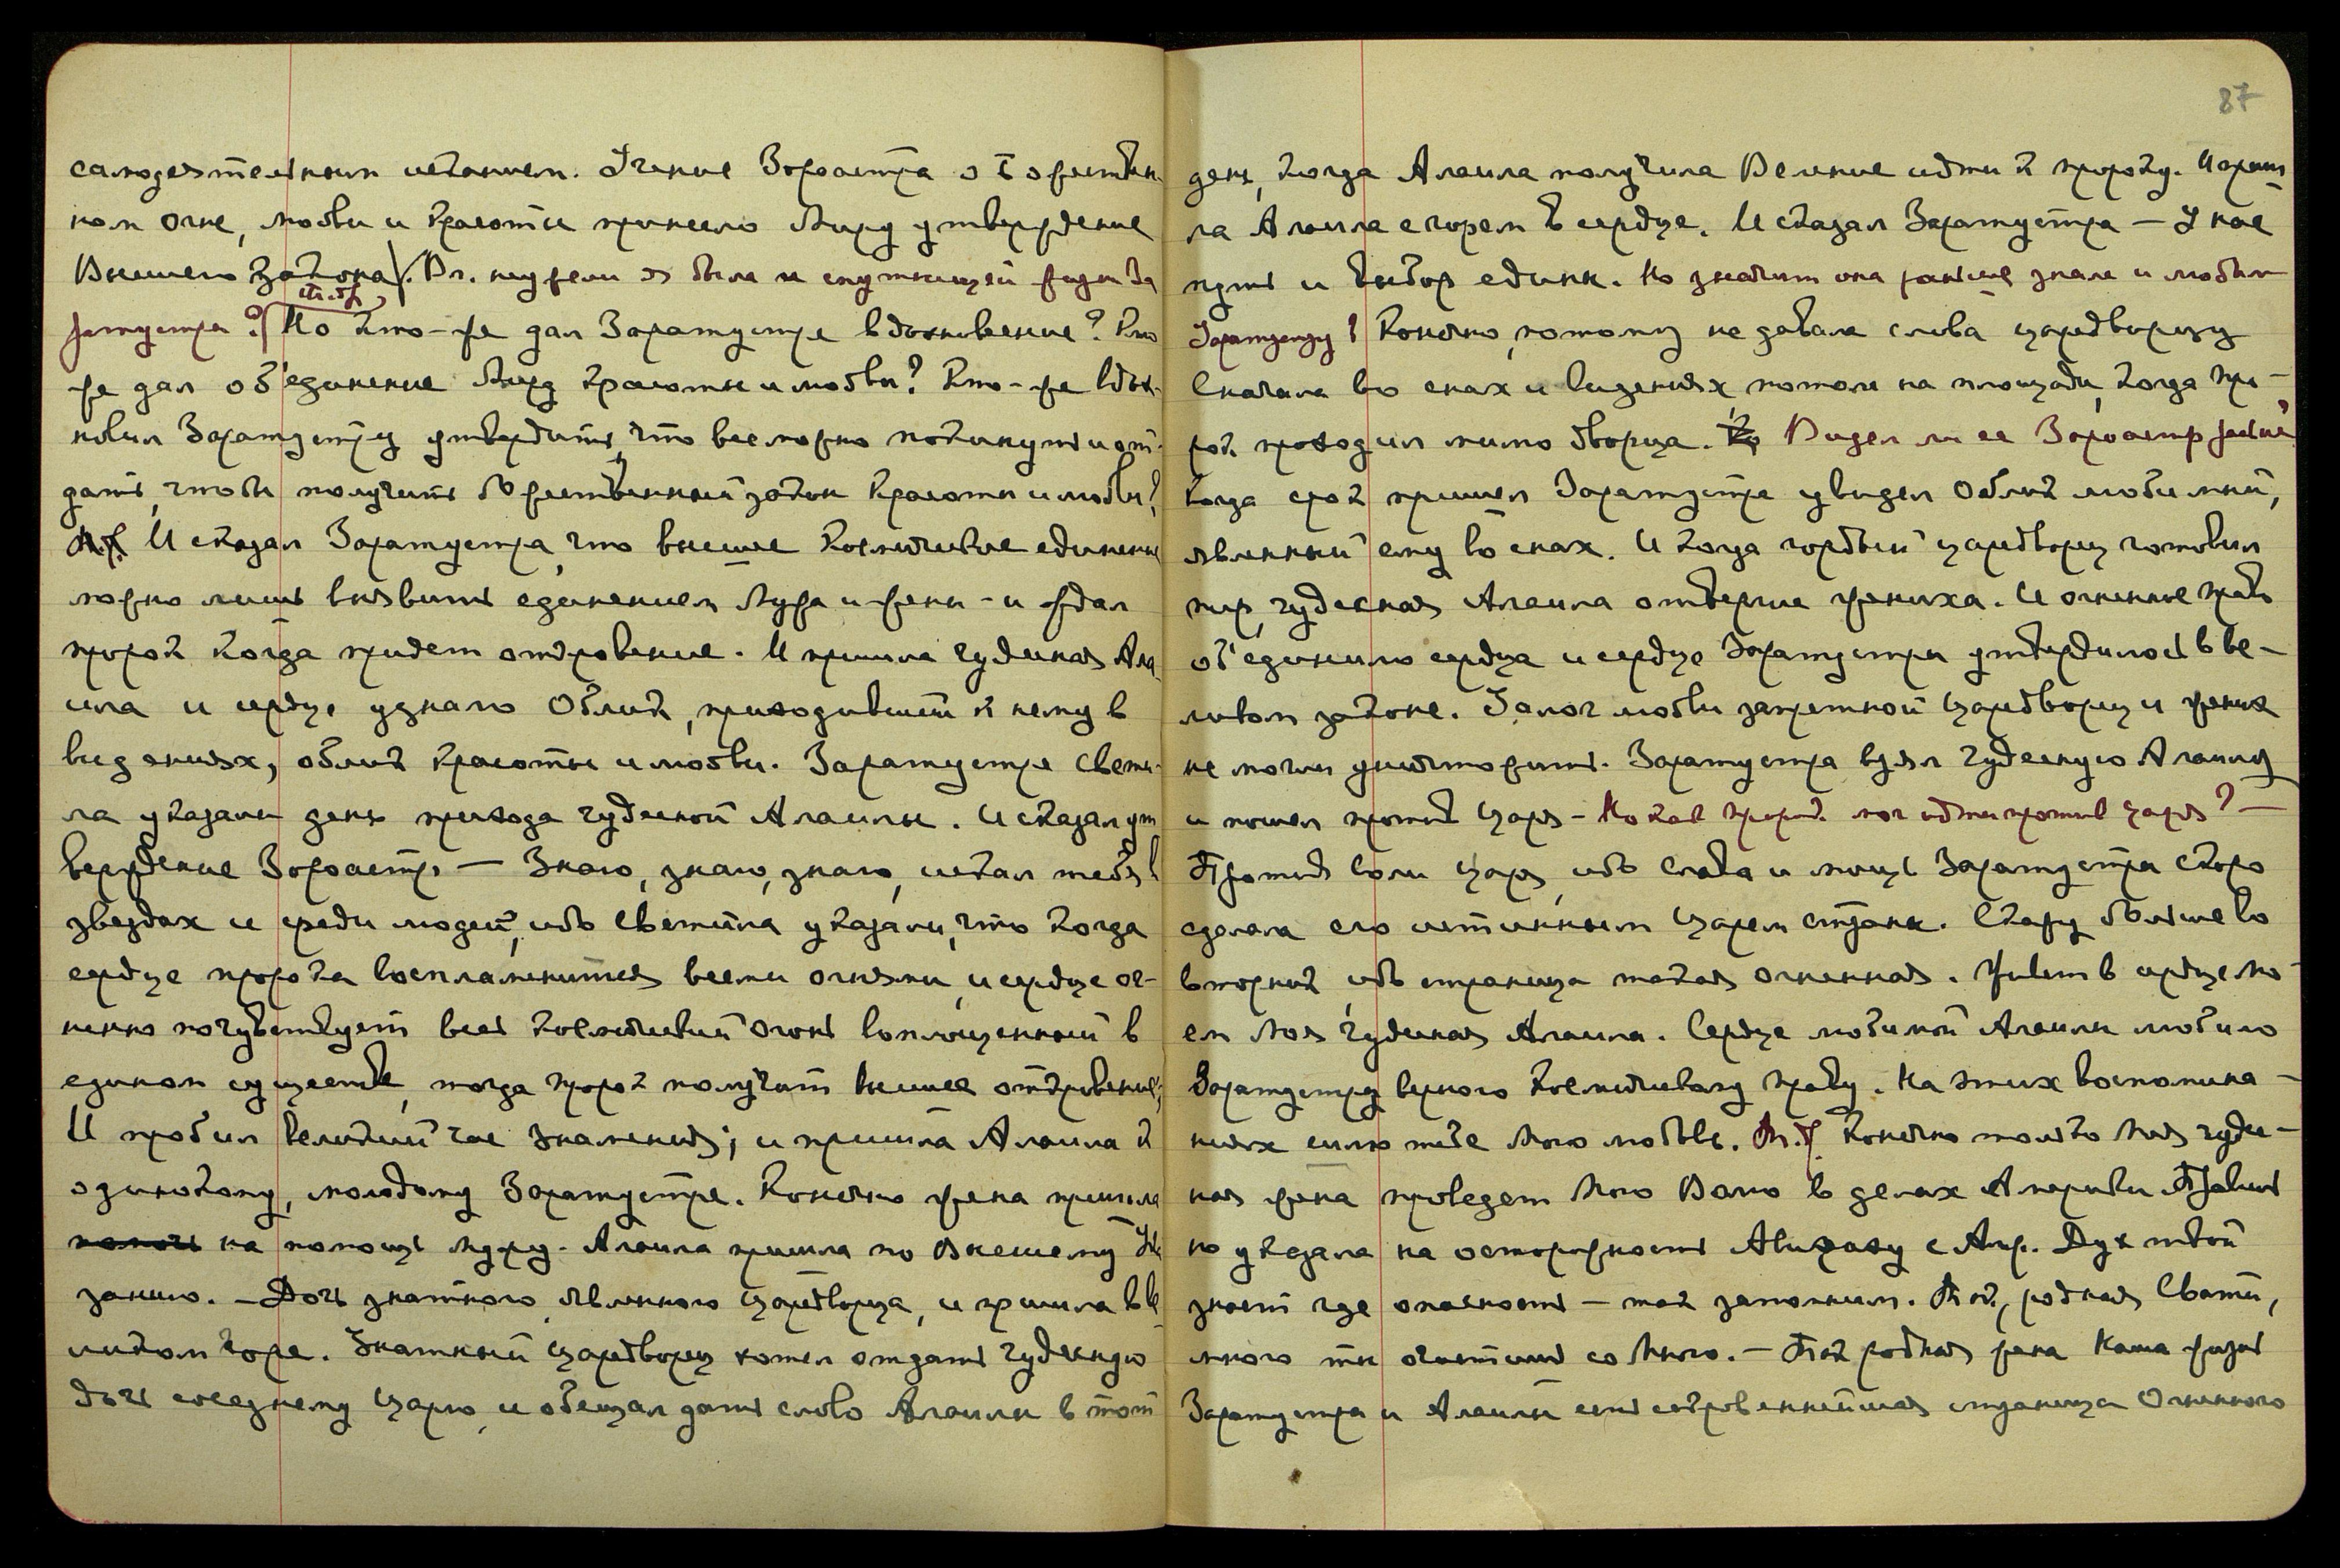 самодеятельным исканием. Учение Зороастра о Божествен-
ном Огне, любви и красоты принесло Миру утверждение
Высшего закона. Вл. неужели я была и спутницей жизни За
ст. тр.
ратустра? Но кто-же дал Заратустре вдохновение? Кто
же дал об'единение Миру красоты и любви? Кто-же вдох-
новил Заратустру утвердить, что все можно покинуть и от-
дать, чтобы получить божественный закон красоты и любви?
И сказал Заратустра, что высшее космическое единение
можно лишь выявить единением Мужа и жены - и ждал
пророк когда придет откровение. И пришла чудесная Ала-
ила и сердце узнало Облик, приходивший к нему в
видениях, облик красоты и любви. Заратустре свети-
ла указали день прихода чудесной Алаилы. И сказал ут
верждение Зороастр — Знаю, знаю, знаю, искал тебя в
звездах и среди людей, ибо светила указали, что когда
сердце пророка воспламенится всеми огнями, и сердце ог-
ненно почувствует весь космический огонь воплощенный в
едином существе, тогда пророк получит высшее откровение;
И пробил великий час знамения; и пришла Алаила к
одинокому, молодому Заратустре. Конечно жена пришла
на помощь мужу. Алаила пришла по Высшему Ука
занию. — Дочь знатного, явленного царедворца, и пришла в ве
ликом горе. Знатный царедворец хотел отдать чудесную
дочь соседнему царю, и обещал дать слово Алаилы в тот
87
день, когда Алаила получила Веление идти к пророку. И приш-
ла Алаила с горем в сердце. И сказал Заратустра — У нас
путь и выбор един. Но значит она раньше знала и любила
Заратустру? Конечно, потому не давала слова царедворцу
Сначала во снах и видениях потом на площади, когда про-
рок проходил мимо дворца. Видел ли ее Зороастр раньше?
Когда срок пришел Заратустра увидел Облик любимый,
явленный ему во снах. И когда гордый царедворец готовил
пир, чудесная Алаила отвергла жениха. И огненное право
об'единило сердца и сердце Заратустры утвердилось в ве-
ликом законе. Залог любви запретной царедворец и жених
не могли уничтожить. Заратустра взял чудесную Алаилу
и пошел против царя - Но как пророк мог идти против царя? —
Против воли царя, ибо слава и мощь Заратустра скоро
сделала его истинным царем страны. Скажу больше во
вторник, ибо страница такая огненная. Живет в сердце Мо-
ем Моя чудесная Алаила. Сердце любимой Алаилы любило
Заратустру верного космическому праву. На этих воспомина-
ниях шлю тебе Мою любовь. Конечно только Моя чудес-
ная жена проведет Мою Волю в делах Америки Правиль
но указала на осторожность Авираху с Амр. Дух твой
знает где опасность - так запомним. Так, родная Свати,
много ты очистишь со Мною. - Так родная жена Наша жизнь
Заратустра и Алаилы есть сокровеннейшая страница Огненного